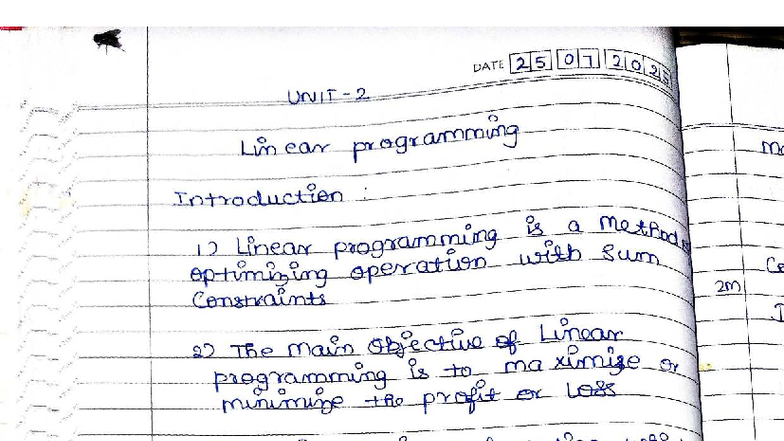 DATE 25 07 2025
UNIT-2
Linear programming
Introduction :
1) Linear programming is a method
optimizing operation with sum
Constraints
2) The main objective of Linear
programming is to maximize or
minimize the profit or Loss
2m